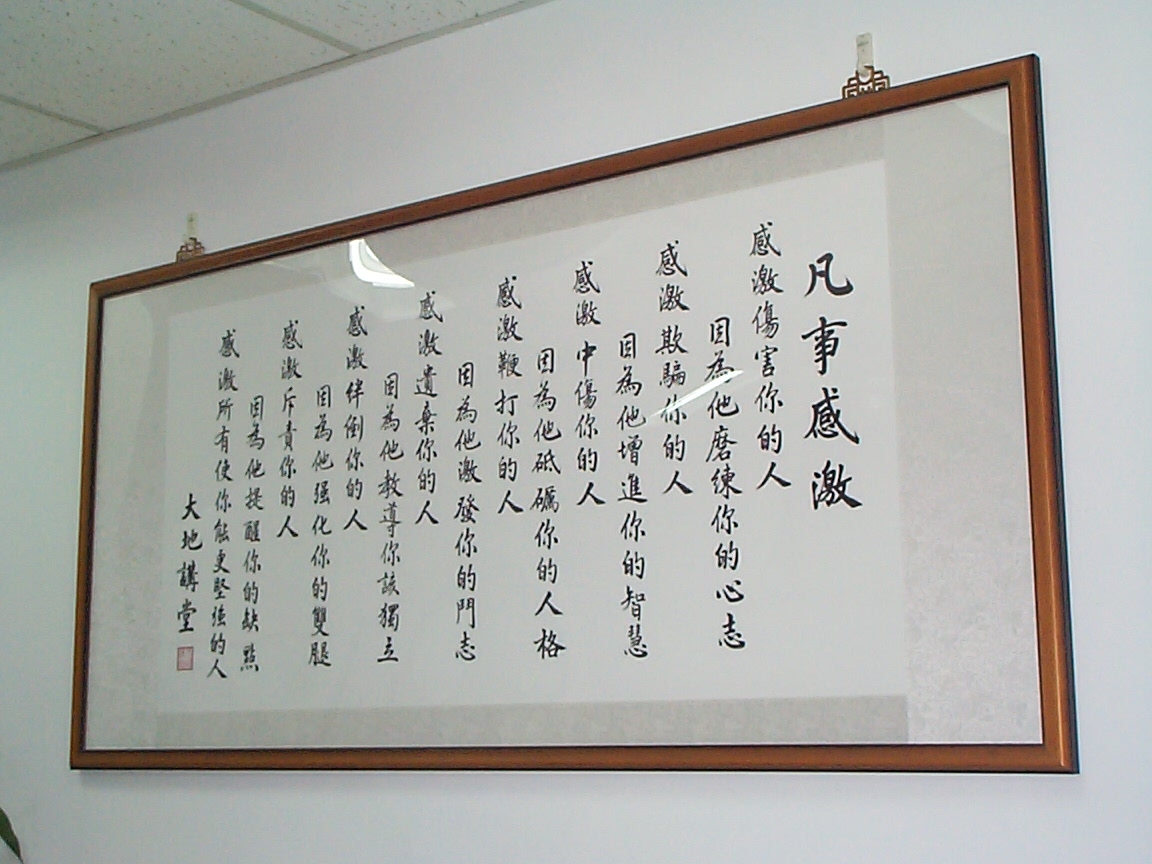 凡事感激
感激傷害你的人
因為他磨練你的心志
感激欺騙你的人
因為他增進你的智慧
感激中傷你的人
因為他砥礪你的人格
感激鞭打你的人
因為他激發你的鬥志
感激遺棄你的人
因為他教導你該獨立
感激絆倒你的人
因為他强化你的雙腿
感激斥責你的人
因為他提醒你的缺點
感激所有使你能更堅強的人
大地講堂